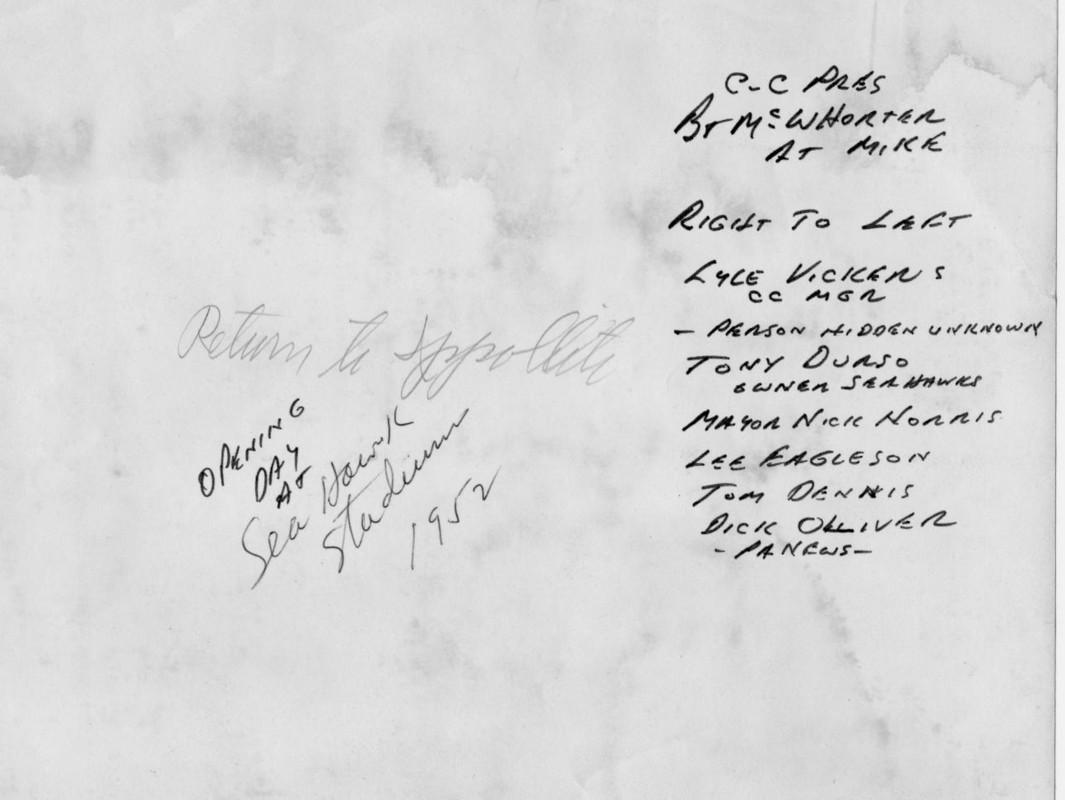 C-C PRES
BT McWHORTER
AT MIKE
RIGHT TO LEFT
LYLE VICKERS
CC MGR
- PERSON HIDDEN UNKNOWN
TONY DURSO
OWNER SEAHAWKS
MAYOR NICK NORRIS
LEE EAGLESON
TOM DENNIS
DICK OLLIVER
- PA NEWS -
Return to Ippolito
OPENING
DAY
AT
Sea Hawk
Stadium
1952